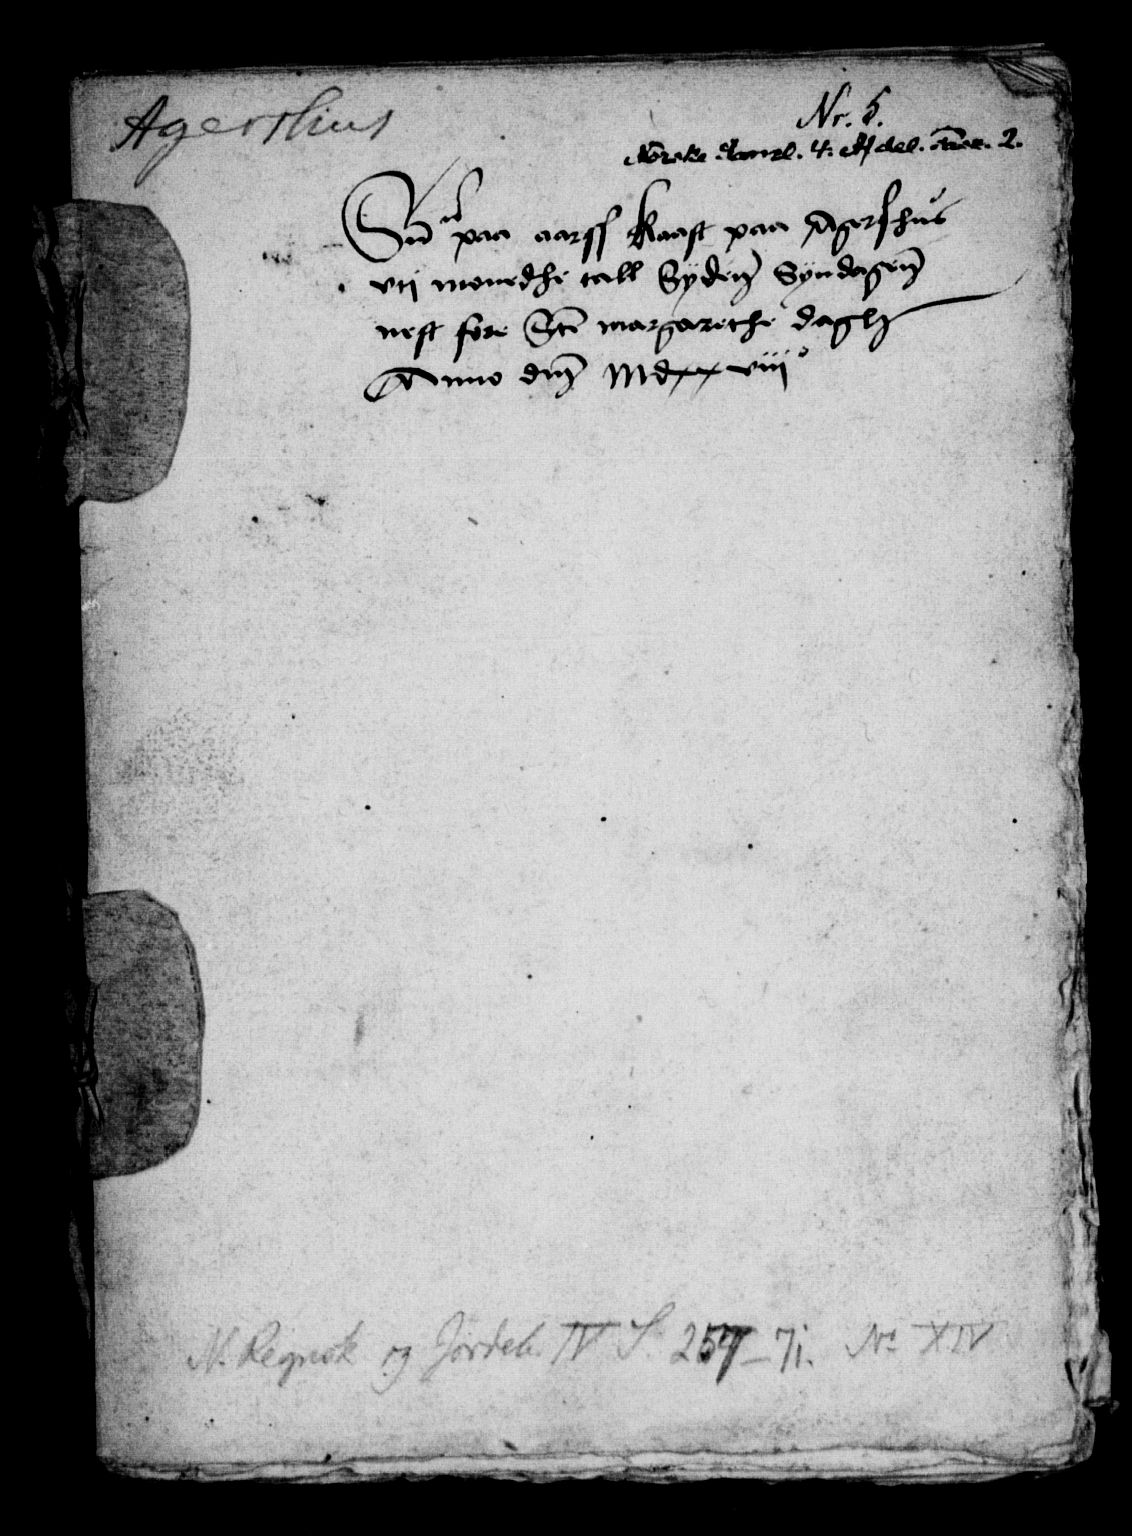 Agershus
Nr. 5.
Norske Saml. 4. Afdel. 2.
Sūm paa aarss Kaast paa Agershus
vti monedhe tall Sydeñ Syndageñ
nest fore Stē margarethe dagh
Anno dnj Mdxxviij°
N. Regnsk og Jordeb. IV S. 257–71. No XIV